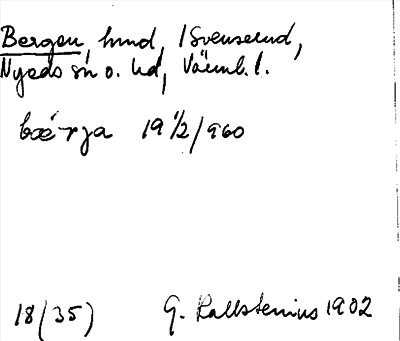 Bergen, hmd, i Svenserud,
Nyeds sn o. hd, Värml. l.
bæ´rja 19 1/2/960
18(35) G. Kallstenius 1902